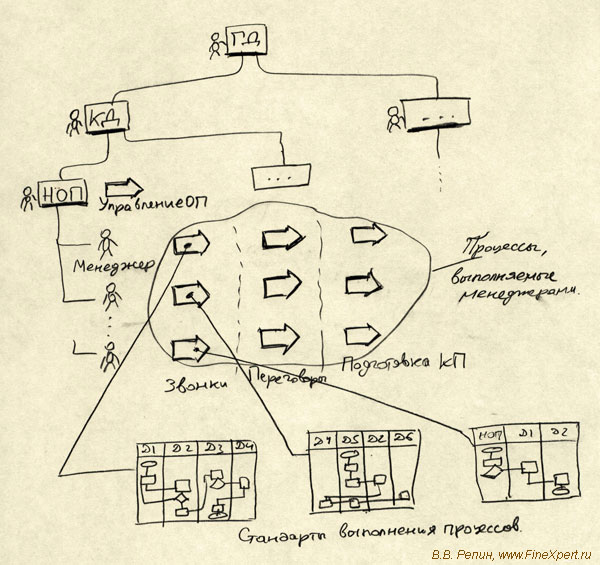 ГД
КД
...
НОП
...
Управление ОП
Менеджер
Процессы,
выполняемые
менеджерами.
Звонки
Переговоры
Подготовка КП
D1 D2 D3 D4
D4 D5 D2 D6
НОП D1 D2
Стандарты выполнения процессов.
В.В. Репин, www.FineXpert.ru